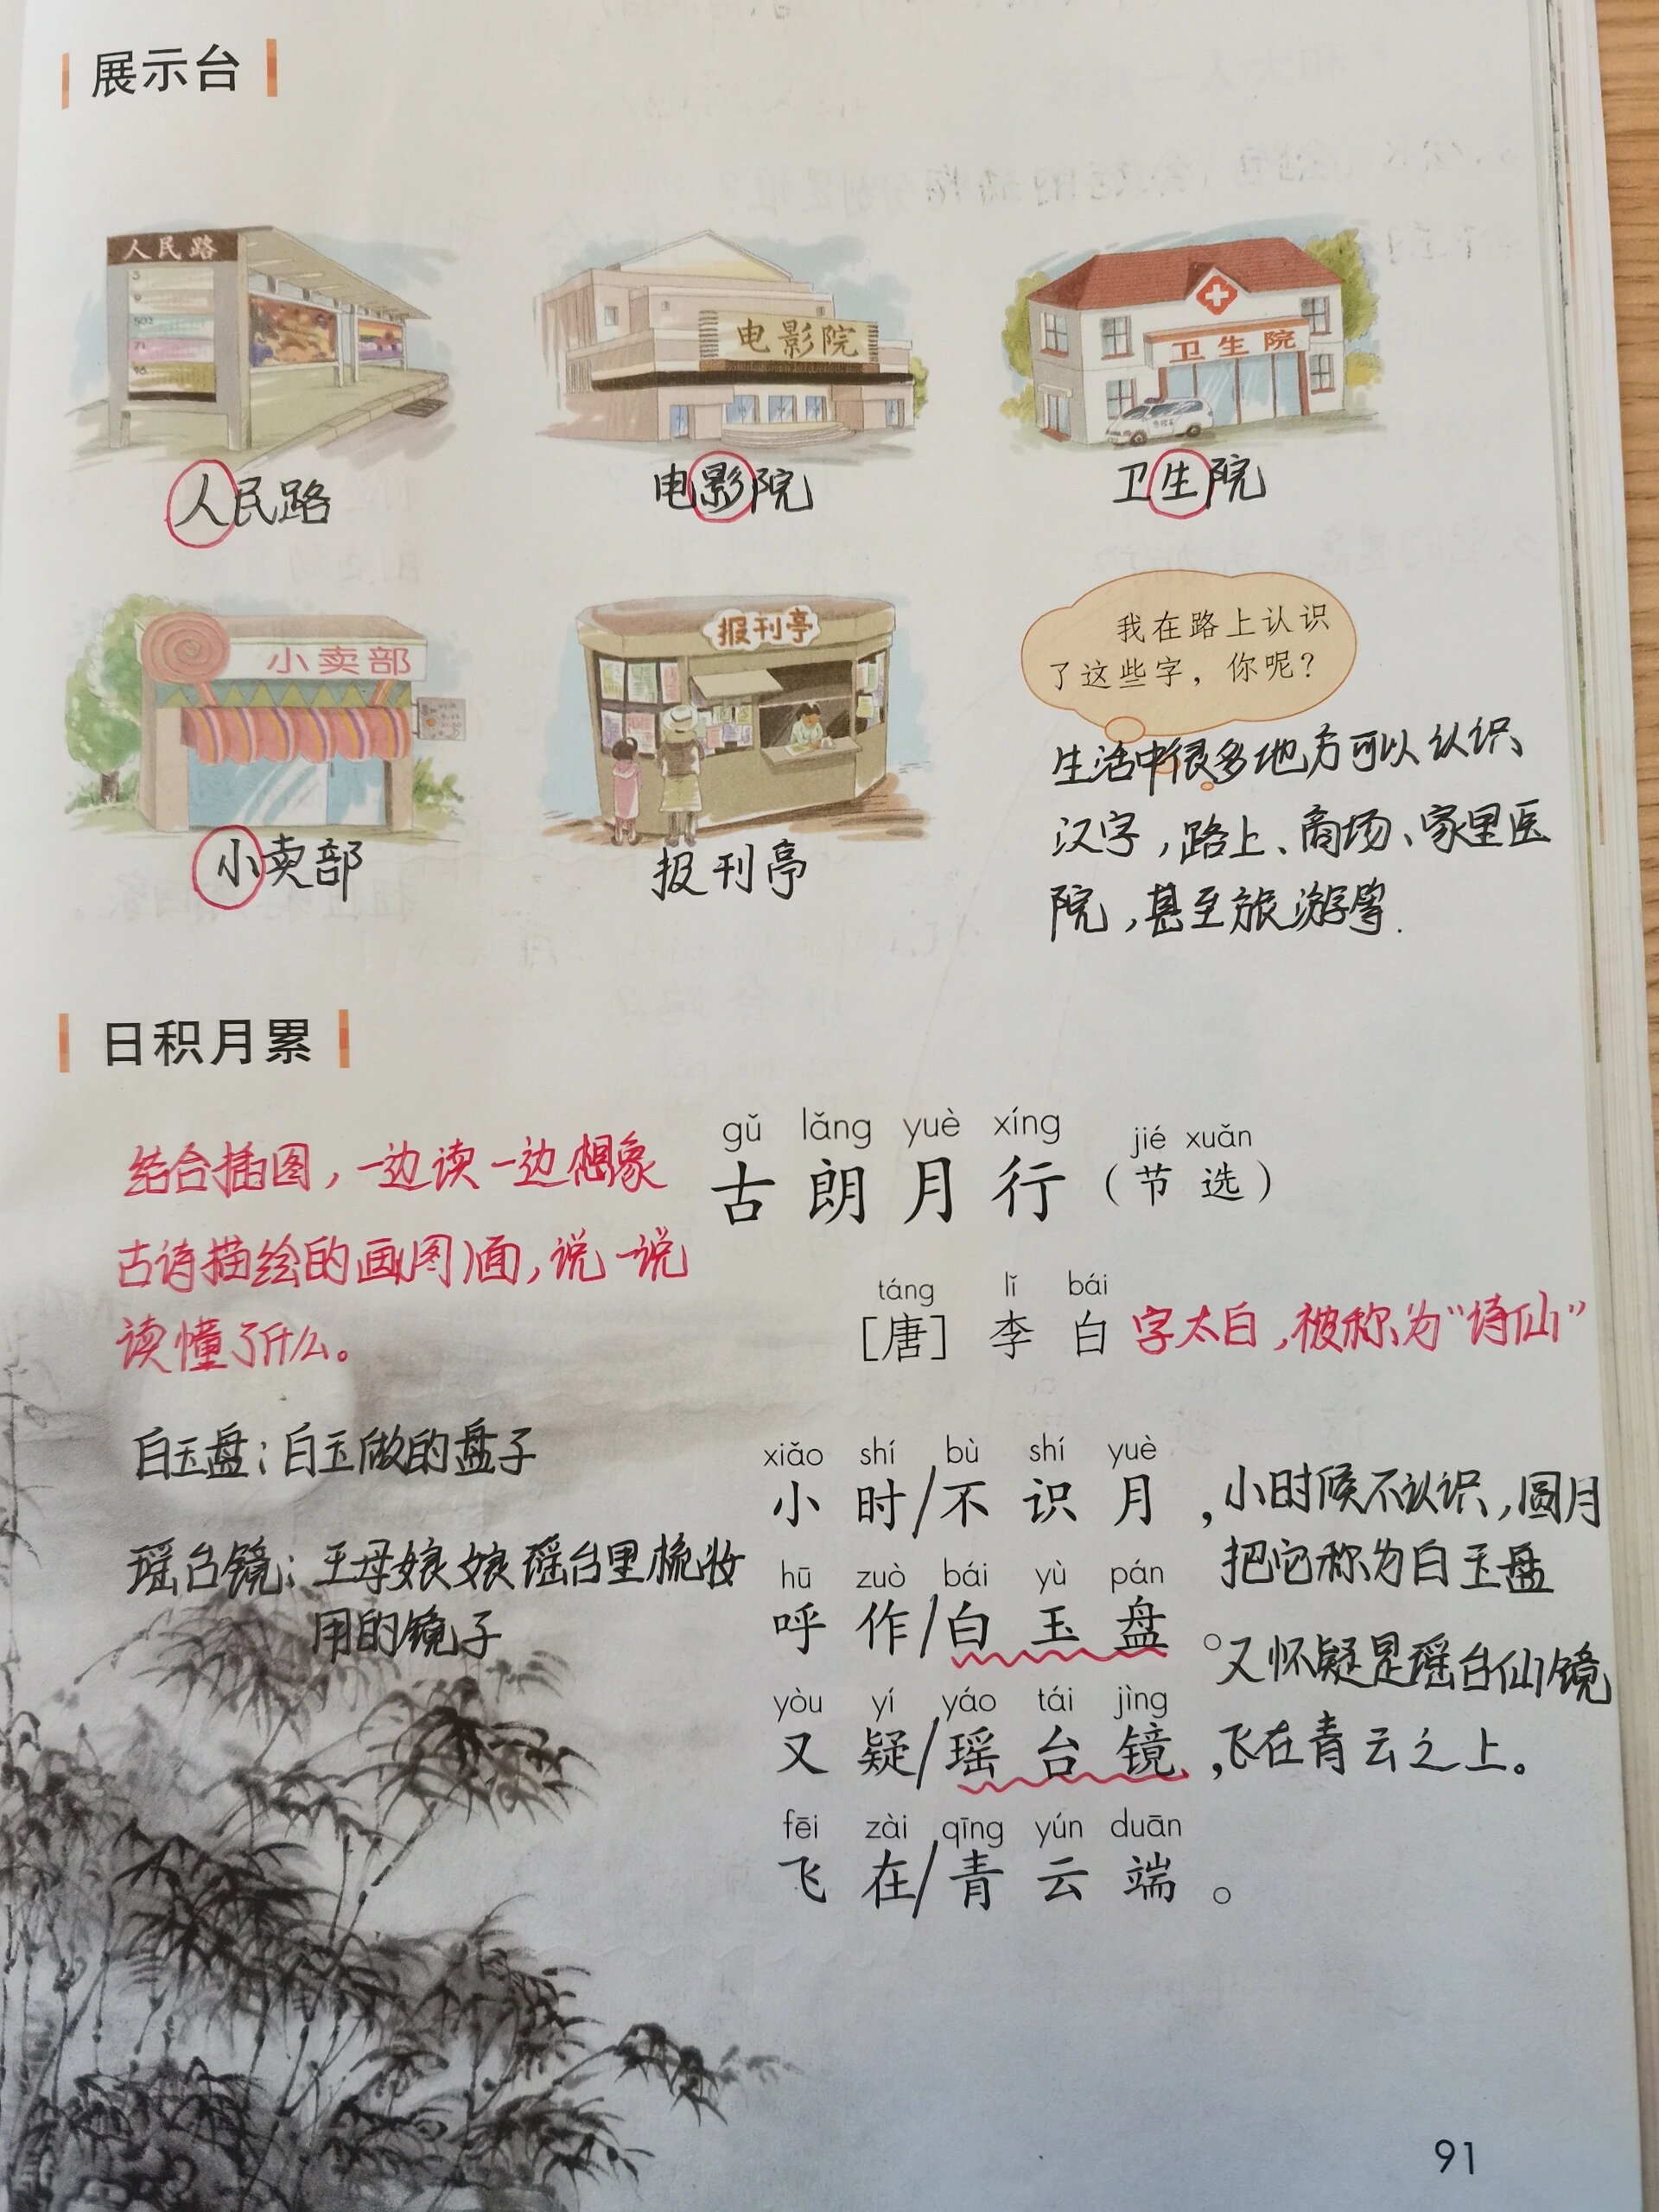 展示台
人民路
3
9
502
71
电影院
卫生院
人民路
电影院
卫生院
小卖部
报刊亭
我在路上认识
了这些字，你呢？
小卖部
报刊亭
生活中很多地方可以认识
汉字，路上、商场、家里医
院，甚至旅游等.
日积月累
结合插图，一边读一边想象
古诗描绘的画(图)面，说一说
读懂了什么。
gǔ lǎng yuè xíng
jié xuǎn
古朗月行（节选）
táng lǐ bái
［唐］李白
字太白，被称为“诗仙”
白玉盘：白玉做的盘子
瑶台镜：王母娘娘瑶台里梳妆
用的镜子
xiǎo shí bù shí yuè
小时/不识月，
小时候不认识，圆月
hū zuò bái yù pán
把它称为白玉盘
呼作/白玉盘。
又怀疑是瑶台仙镜
yòu yí yáo tái jìng
又疑/瑶台镜，
飞在青云之上。
fēi zài qīng yún duān
飞在/青云端。
91